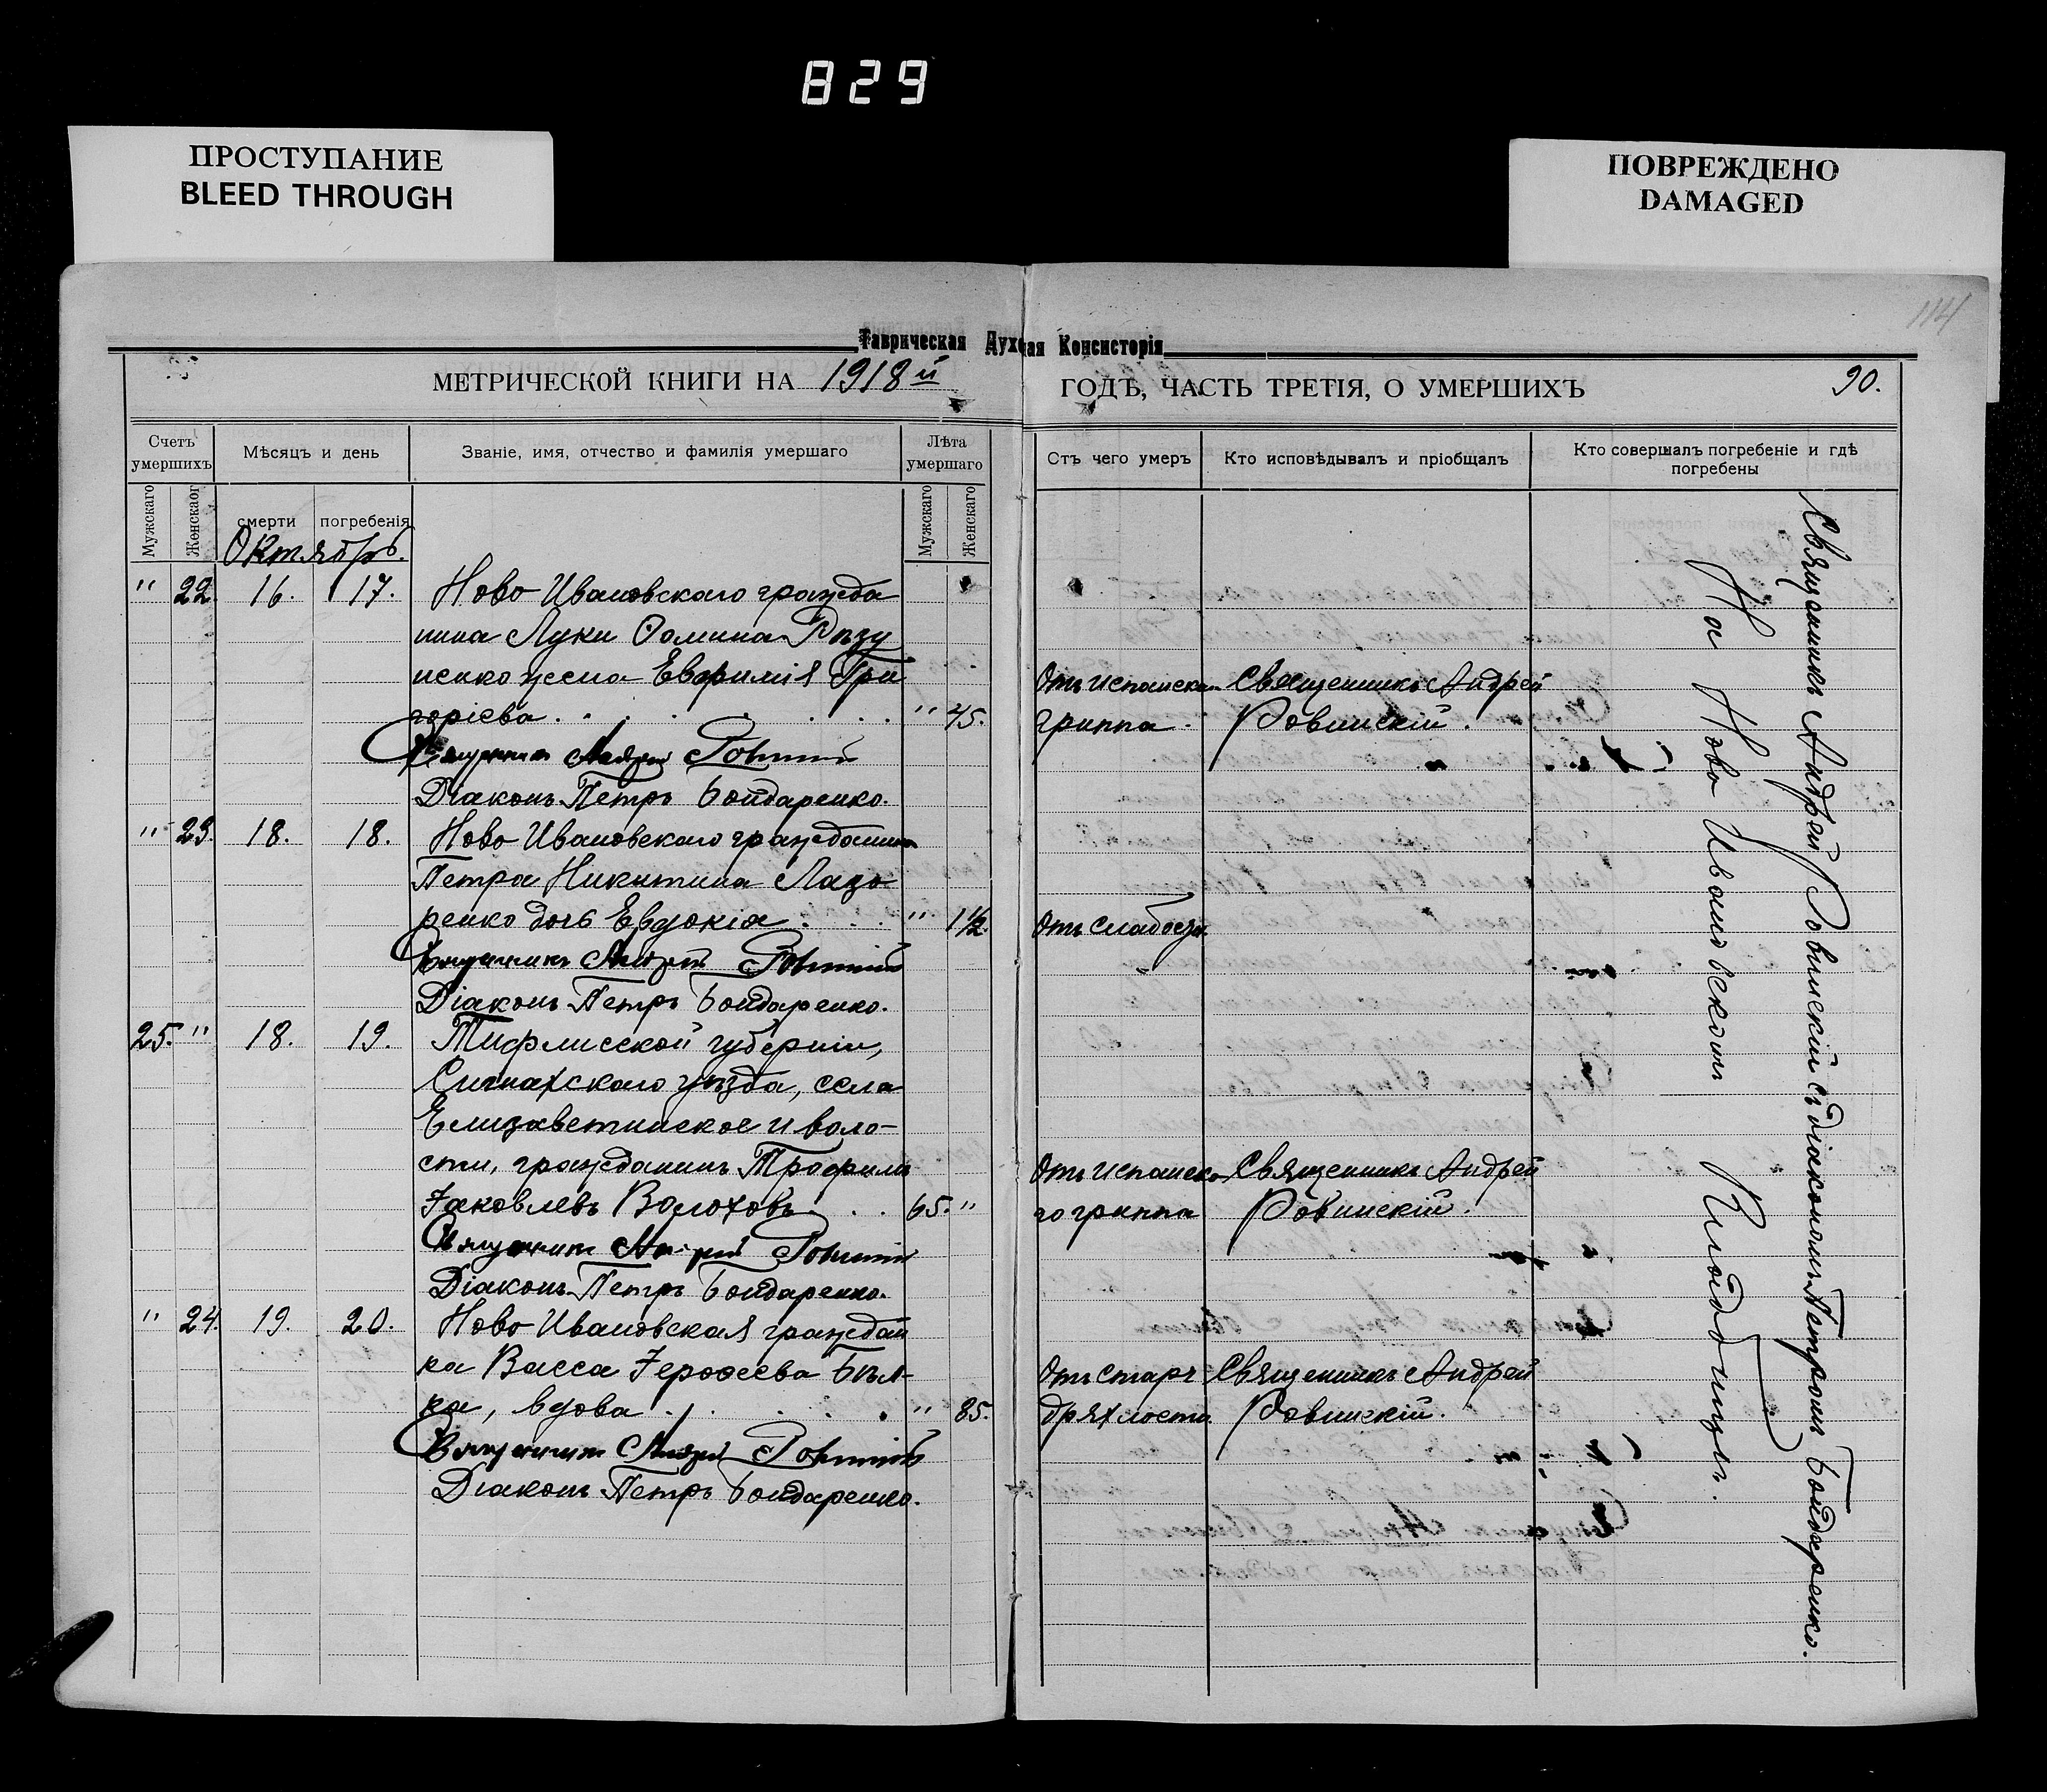 829
ПРОСТУПАНИЕ
BLEED THROUGH
ПОВРЕЖДЕНО
DAMAGED
114
Таврическая Духовная Консисторія
МЕТРИЧЕСКОЙ КНИГИ НА 1918й ГОДЪ, ЧАСТЬ ТРЕТІЯ, О УМЕРШИХЪ 90.
Счетъ умершихъ
Мѣсяцъ и день
Званіе, имя, отчество и фамилія умершаго
Лѣта умершаго
Стъ чего умеръ
Кто исповѣдывалъ и пріобщалъ
Кто совершалъ погребеніе и гдѣ погребены
Мужскаго Женскаог смерти погребенія Мужскаго Женскаго
Октябрь.
" 22. 16. 17. Ново Ивановскаго гражда
нина Луки Ѳомина Рѣзу
ненко жена Евфимія Гри Отъ испанска Священникъ Андрей
горіева " 45. гриппа. Ровинскій.
Священникъ Андрей Ровинскій
Діаконъ Петръ Бондаренко.
" 23. 18. 18. Ново Ивановскаго гражданина
Петра Никитина Лазо
ренко дочь Евдокія " 1½. Отъ слабости.
Священникъ Андрей Ровинскій
Діаконъ Петръ Бондаренко.
25. " 18. 19. Тифлисской губерніи,
Сигнахскаго уѣзда, села
Елизаветинское и воло-
сти, гражданинъ Трофимъ Отъ испанска Священникъ Андрей
Іаковлевъ Волоховъ 65. " го гриппа Ровинскій.
Священникъ Андрей Ровинскій
Діаконъ Петръ Бондаренко.
" 24. 19. 20. Ново Ивановская граждан
ка Васса Іерофеева Бѣл- Отъ старч Священникъ Андрей
ка, вдова " 85. дряхлости Ровинскій.
Священникъ Андрей Ровинскій
Діаконъ Петръ Бондаренко.
Священникъ Андрей Ровинскій съ діакономъ Петромъ Бондаренко.
На Ново Ивановскомъ кладбищѣ.